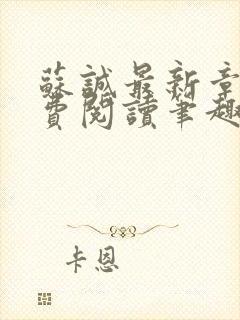 蘇誠最新章
費閱讀筆趣
卡恩